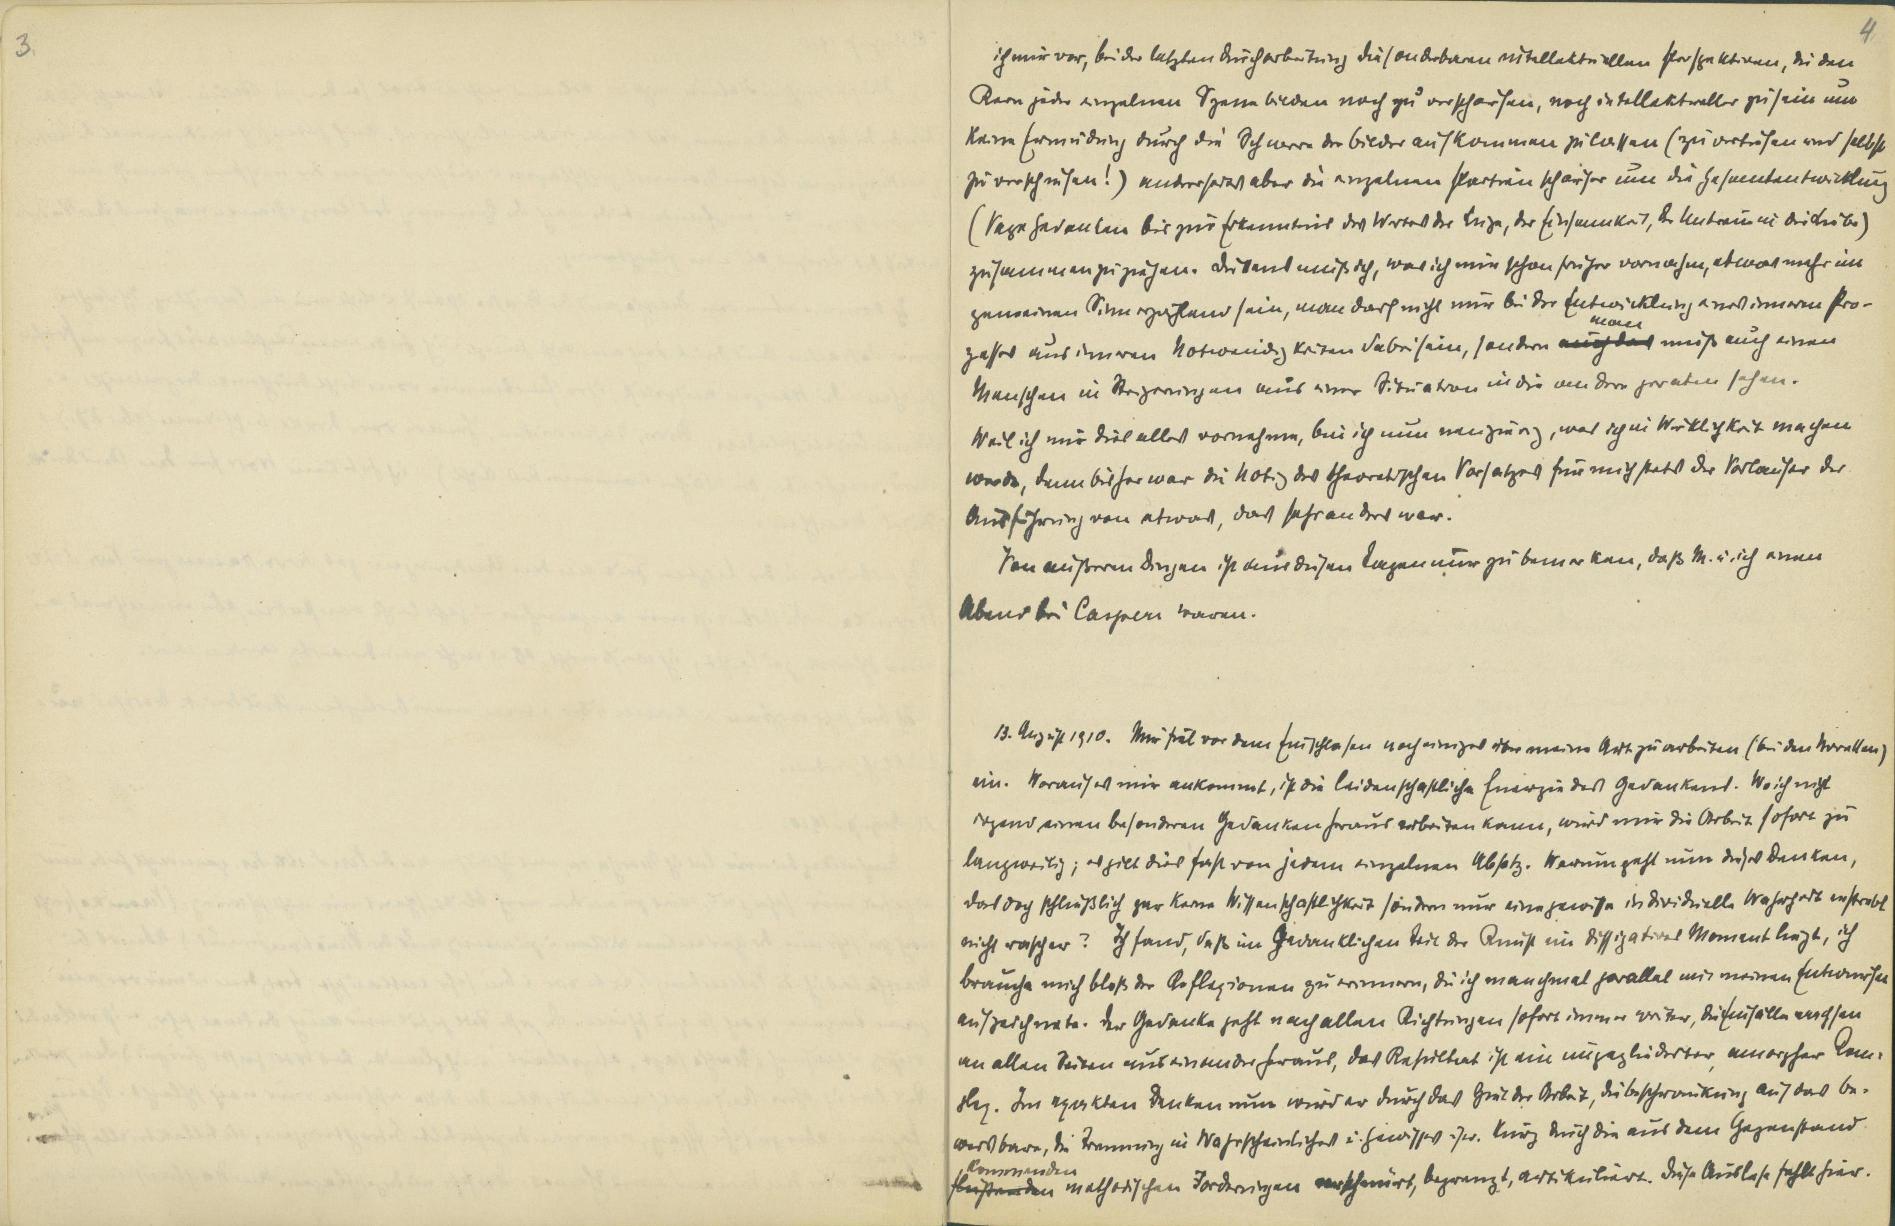 3.
4
ich mir vor, bei der letzten Durcharbeitung die sonderbaren intellektuellen Perspektiven, die den
Kern jeder einzelnen Szene bilden noch zu verschärfen, noch intellektueller zu sein um
keine Ermüdung durch die Schwere der Bilder aufkommen zu lassen (zu vertiefen und selbst
zu verschärfen!) anderseits aber die einzelnen Partien schärfer um die Gesamtentwicklung
(Vage Gedanken bis zur Erkenntnis des Wertes der Lüge, der Einsamkeit, der Untreue in der Liebe)
zusammenzuziehen. Drittens muß ich, was ich mir schon früher vornahm, etwas mehr im
gemeinen Sinn erzählend sein, man darf nicht nur bei der Entwicklung eines inneren Pro-
zesses aus inneren Notwendigkeiten dabei sein, sondern auch das man muß auch einen
Menschen in Steigerungen aus einer Situation in die andere geraten sehen.
Weil ich mir dies alles vornehme, bin ich nun neugierig, was ich in Wirklichkeit machen
werde, denn bisher war die Notiz des theoretischen Vorsatzes für mich stets der Vorläufer der
Ausführung von etwas, das sehr anders war.
Von äußeren Dingen ist aus diesen Tagen nur zu bemerken, daß M. u ich einen
Abend bei Caspers waren.
13. August 1910. Mir fiel vor dem Einschlafen noch einiges über meine Art zu arbeiten (bei den Novellen)
ein. Worauf es mir ankommt, ist die leidenschaftliche Energie des Gedankens. Wo ich nicht
irgend einen besonderen Gedanken herausarbeiten kann, wird mir die Arbeit sofort zu
langweilig; es gilt dies fast von jedem einzelnen Absatz. Warum geht nun dieses Denken,
das doch schließlich gar keine Wissenschaftlichkeit sondern nur eine gewisse individuelle Wahrheit anstrebt
nicht rascher? Ich fand, daß im Gedanklichen Teil der Kunst ein dissipatives Moment liegt, ich
brauche mich bloß der Reflexionen zu erinnern, die ich manchmal parallel mit meinen Entwürfen
aufzeichnete. Der Gedanke geht nach allen Richtungen sofort immer weiter, die Einfälle wachsen
an allen Seiten auseinander heraus, das Resultat ist ein ungegliederter, amorpher Kom-
plex. Im exakten Denken nun wird er durch das Ziel der Arbeit, die Beschränkung auf das be-
weisbare, die Trennung in Wahrscheinliches u. Gewisses usw. kurz durch die aus dem Gegenstand
kommenden methodischen Forderungen verschnürt, begrenzt, artikuliert. Diese Auslese fehlt hier.